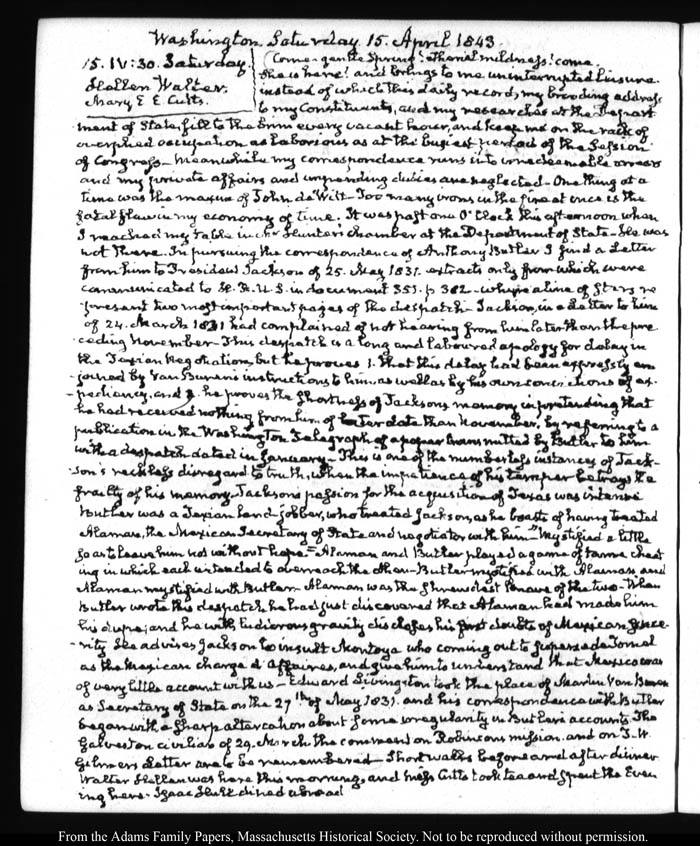 Washington Saturday 15. April 1843.
15. IV:30. Saturday
Hellen Walter.
Mary E E Cutts.
Come gentle Spring! ethereal mildness! come.
She is here! and brings to me uninterrupted leisure.
instead of which this daily record, my brooding address
to my Constituents, and my researches at the Depart
ment of State, fill to the brim every vacant hour, and keep me on the rack of
overplied occupation as laborious as at the busiest period of the Session
of Congress– Meanwhile my correspondence runs into irredeemable arrears
and my private affairs and impending duties are neglected– One thing at a
time was the maxim of John de Witt– Too many irons in the fire at once is the
fatal flaw in my economy of time. It was past one O'Clock this afternoon when
I reached my table in Mr Hunter's chamber at the Department of State– He was
not there. In pursuing the correspondence of Anthony Butler I find a Letter
from him to President Jackson of 25. May 1831. extracts only from which were
communicated to H. R. U. S. in document 351. p 382– where a line of stars re
present two most important pages of the despatch– Jackson, in a Letter to him
of 24. March 1831 had complained of not hearing from him later than the pre
ceding November– This despatch is a long and laboured apology for delay in
the Texian Negotiation, but he proves 1. that this delay had been expressly en
joined by Van Buren's instructions to him, as well as by his own convictions of ex-
pediency, and 2. he proves the shortness of Jacksons memory in pretending that
he had received nothing from him of later date than November, by referring to a
publication in the Washington Telegraph of a paper transmitted by Butler to him
with a despatch dated in January– This is one of the numberless instances of Jack-
son's reckless disregard to truth, when the impatience of his temper betrays the
frailty of his memory. Jacksons passion for the acquisition of Texas was intense
Butler was a Texian land-jobber, who treated Jackson, as he boasts of having treated
Alaman, the Mexican Secretary of State and negotiator with him– "Mystified a little
so as to leave him not without hope"– Alaman and Butler played a game of cheat
ing in which each intended to overreach the other– Butler mystified with Alaman and
Alaman mystified with Butler– Alaman was the shrewdest knave of the two– When
Butler wrote this despatch he had just discovered that Alaman had made him
his dupe; and he with ludicrous gravity discloses his first doubts of Mexican since-
rity He advises Jackson to insult Montoya who coming out to supersede Tornel
as the Mexican chargé d'Affaires, and give him to understand that Mexico was
of very little account with us– Edward Livingston took the place of Martin Van Buren
as Secretary of State on the 27th of May 1831. and his correspondence with Butler
began with a sharp altercation about some irregularity in Butlers accounts. The
Galveston civilian of 29. March the comment on Robinsons mission and on T. W.
Gilmers Letter are to be remembered– Short walks before and after dinner
Walter Hellen was here this morning, and Miss Cutts took tea and spent the Even
ing here– Isaac Hull dined abroad
From the Adams Family Papers, Massachusetts Historical Society. Not to be reproduced without permission.